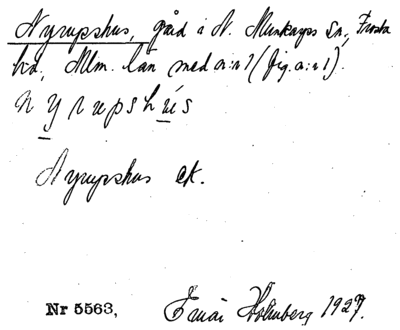 Nyrupshus, gård i N. Munkarps Sn, Frosta
hd, Mlm. län med
nyrupshus
Nyrupshus ek.
Nr 5563, Holmberg 1927.